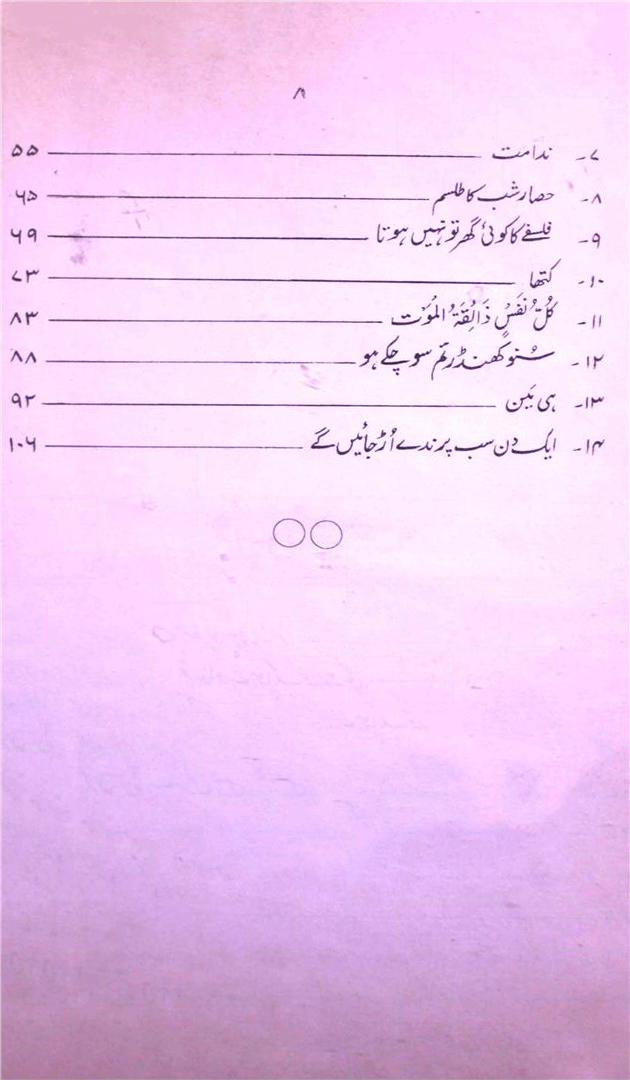 ۸
۷۔ ندامت ۵۵
۸۔ حصار شب کا طلسم ۶۵
۹۔ فلسفے کا کوئی گھر تو نہیں ہوتا ۶۹
۱۰۔ کتھا ۷۳
۱۱۔ کُلُّ نَفَسٍْ ذَائِقَۃُ المُوَت ۸۳
۱۲۔ سُنو کھنڈر تم سو چکے ہو ۸۸
۱۳۔ ہی بَین ۹۲
۱۴۔ ایک دن سب پرندے اُڑ جائیں گے ۱۰۶